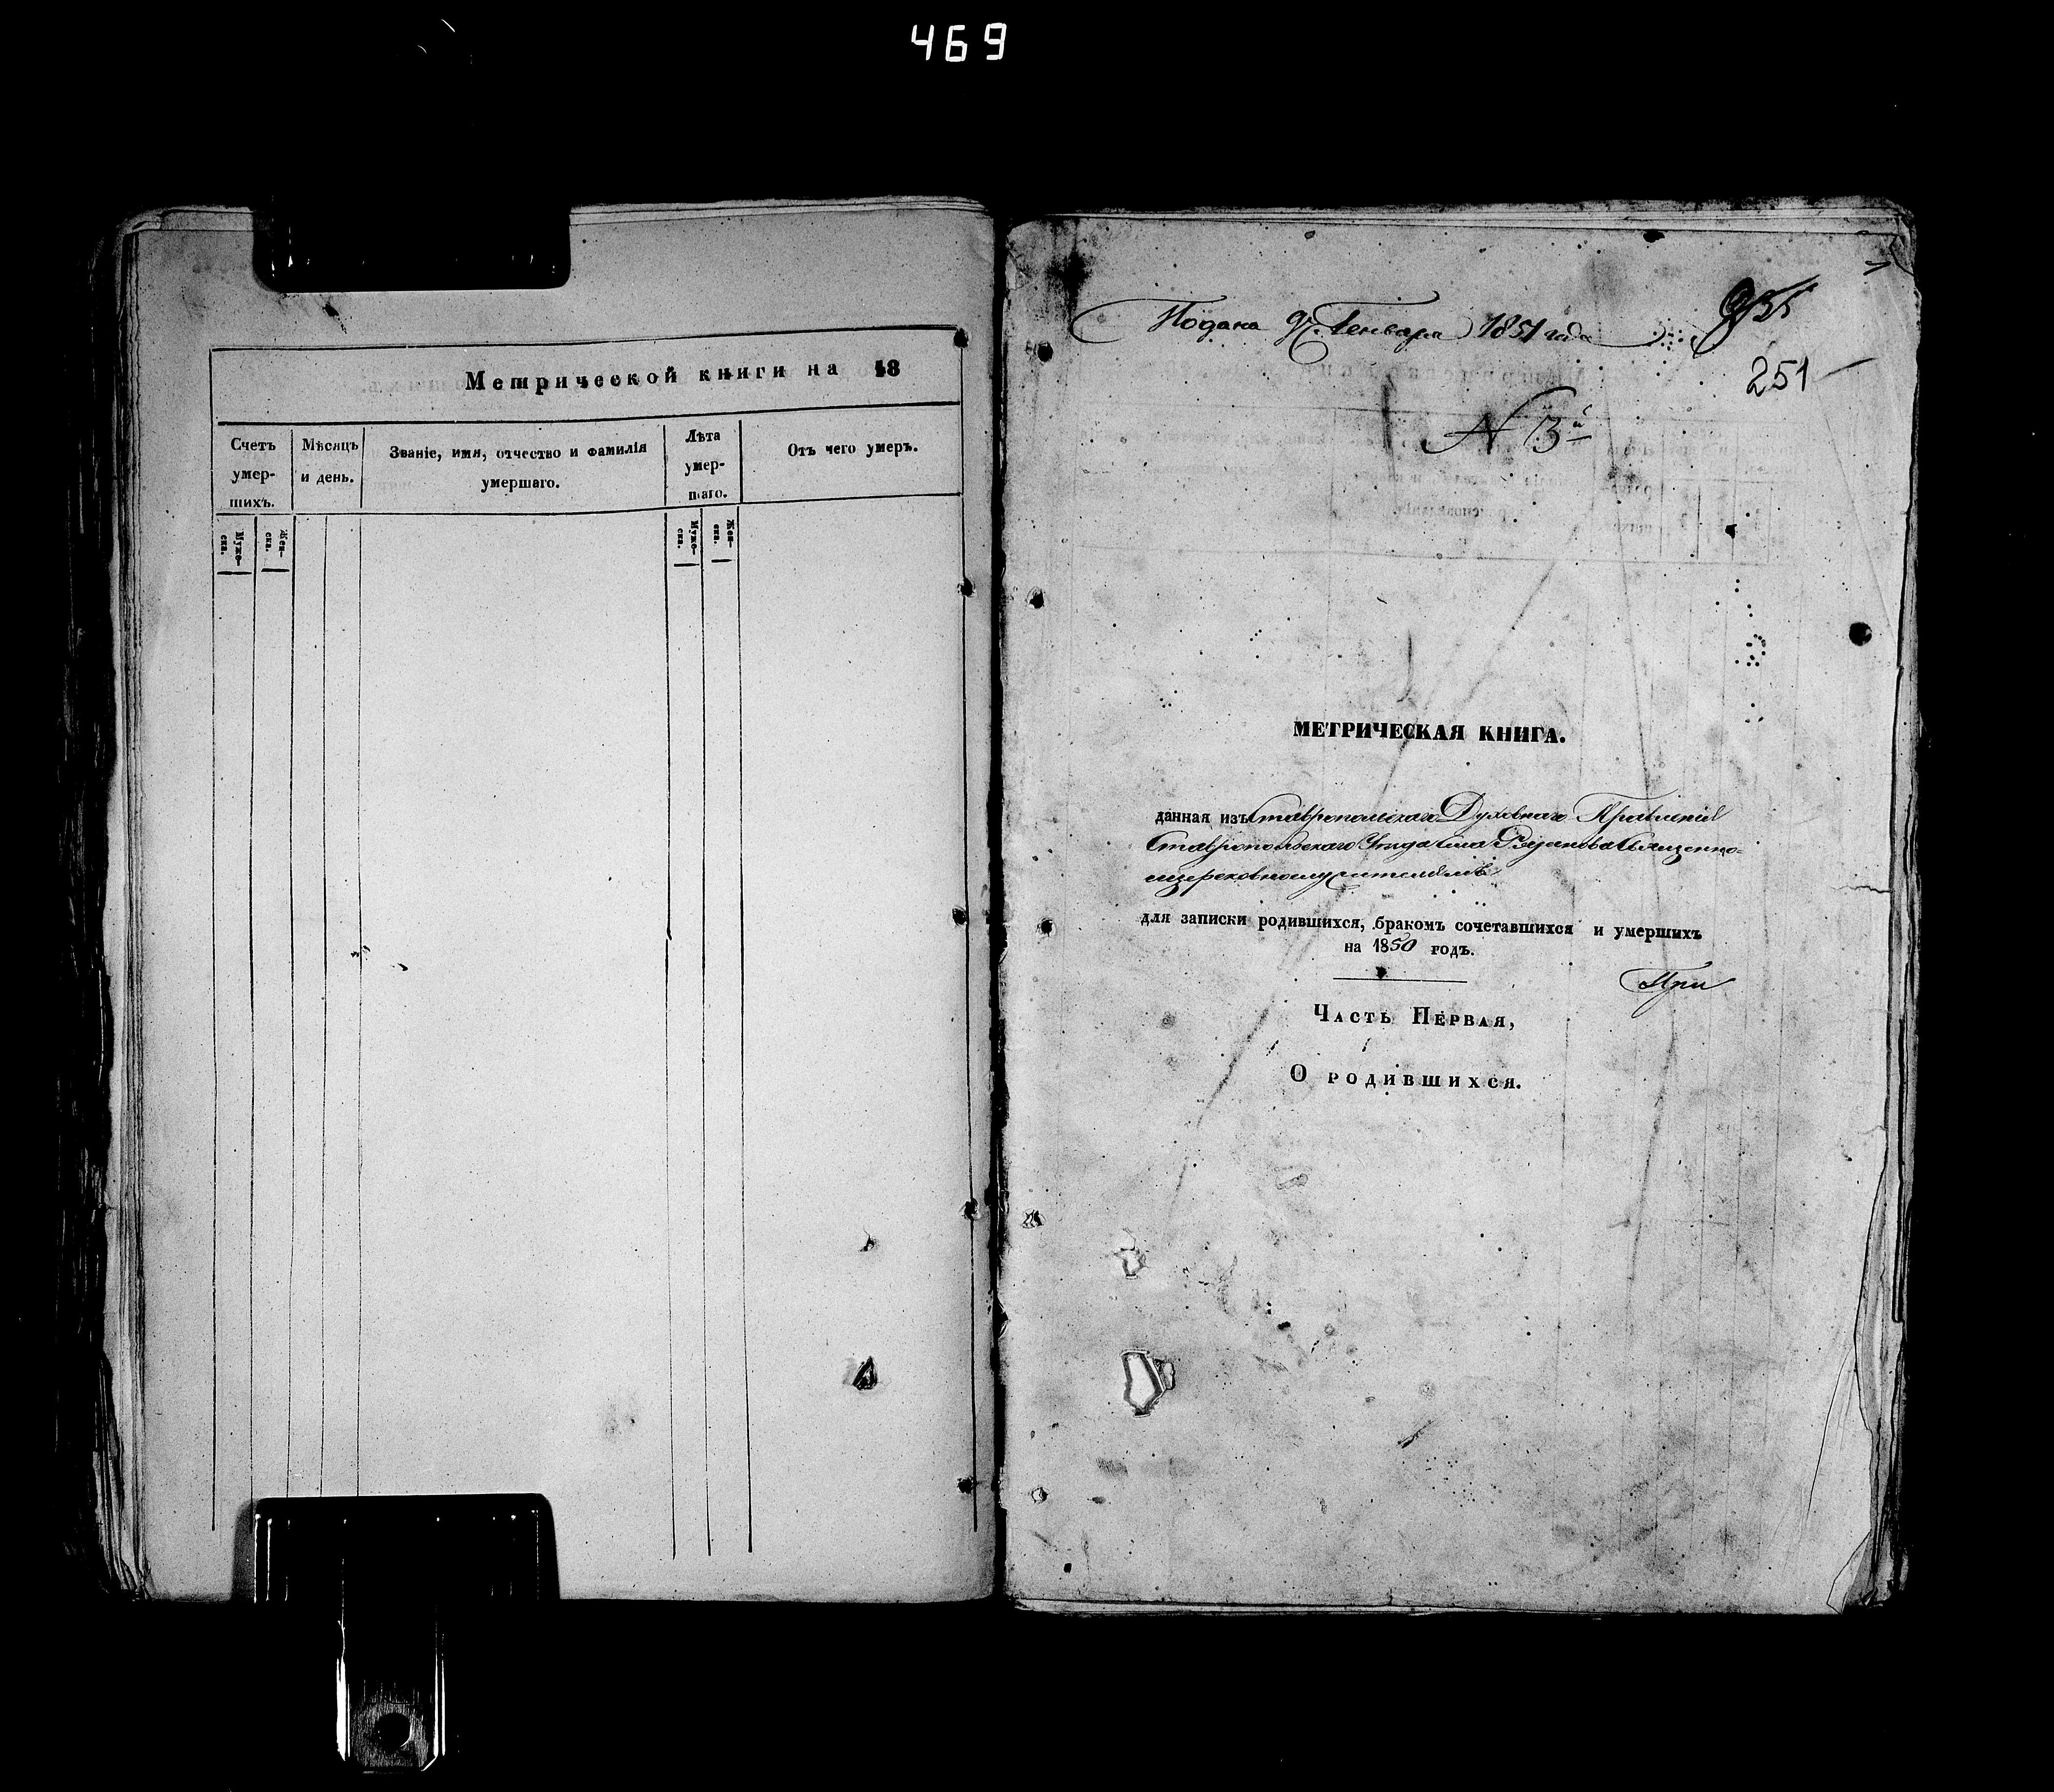 469
Метрической книги на 18
Счетъ умер-шихъ.
Мѣсяцъ и день.
Званіе, имя, отчество и фамилія умершаго.
Лѣта умер-шаго.
Отъ чего умеръ.
Муже-ска.
Жен-ска.
Муже-ска.
Жен-ска.
Подана Генваря 1851 года
251
N 3й
МЕТРИЧЕСКАЯ КНИГА.
данная изъ Ставропольскаго Духовнаго Правленія
Ставропольскаго Уѣзда села Рязанова Священно-
церковнослужителямъ
для записки родившихся, бракомъ сочетавшихся и умершихъ
на 1850 годъ.
При
Часть Первая,
О родившихся.